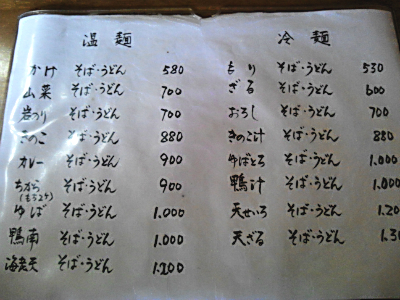 温麺
かけ そば・うどん 580
山菜 そば・うどん 700
岩のり そば・うどん 700
きのこ そば・うどん 880
カレー そば・うどん 900
ちから そば・うどん 900
ゆば そば・うどん 1.000
鴨南 そば・うどん 1.000
海老天 そば・うどん 1.200
冷麺
もり そば・うどん 530
ざる そば・うどん 600
おろし そば・うどん 700
きのこ汁 そば・うどん 880
ゆばとろ そば・うどん 1.000
鴨汁 そば・うどん 1.000
天せいろ そば・うどん 1.20
天ざる そば・うどん 1.3